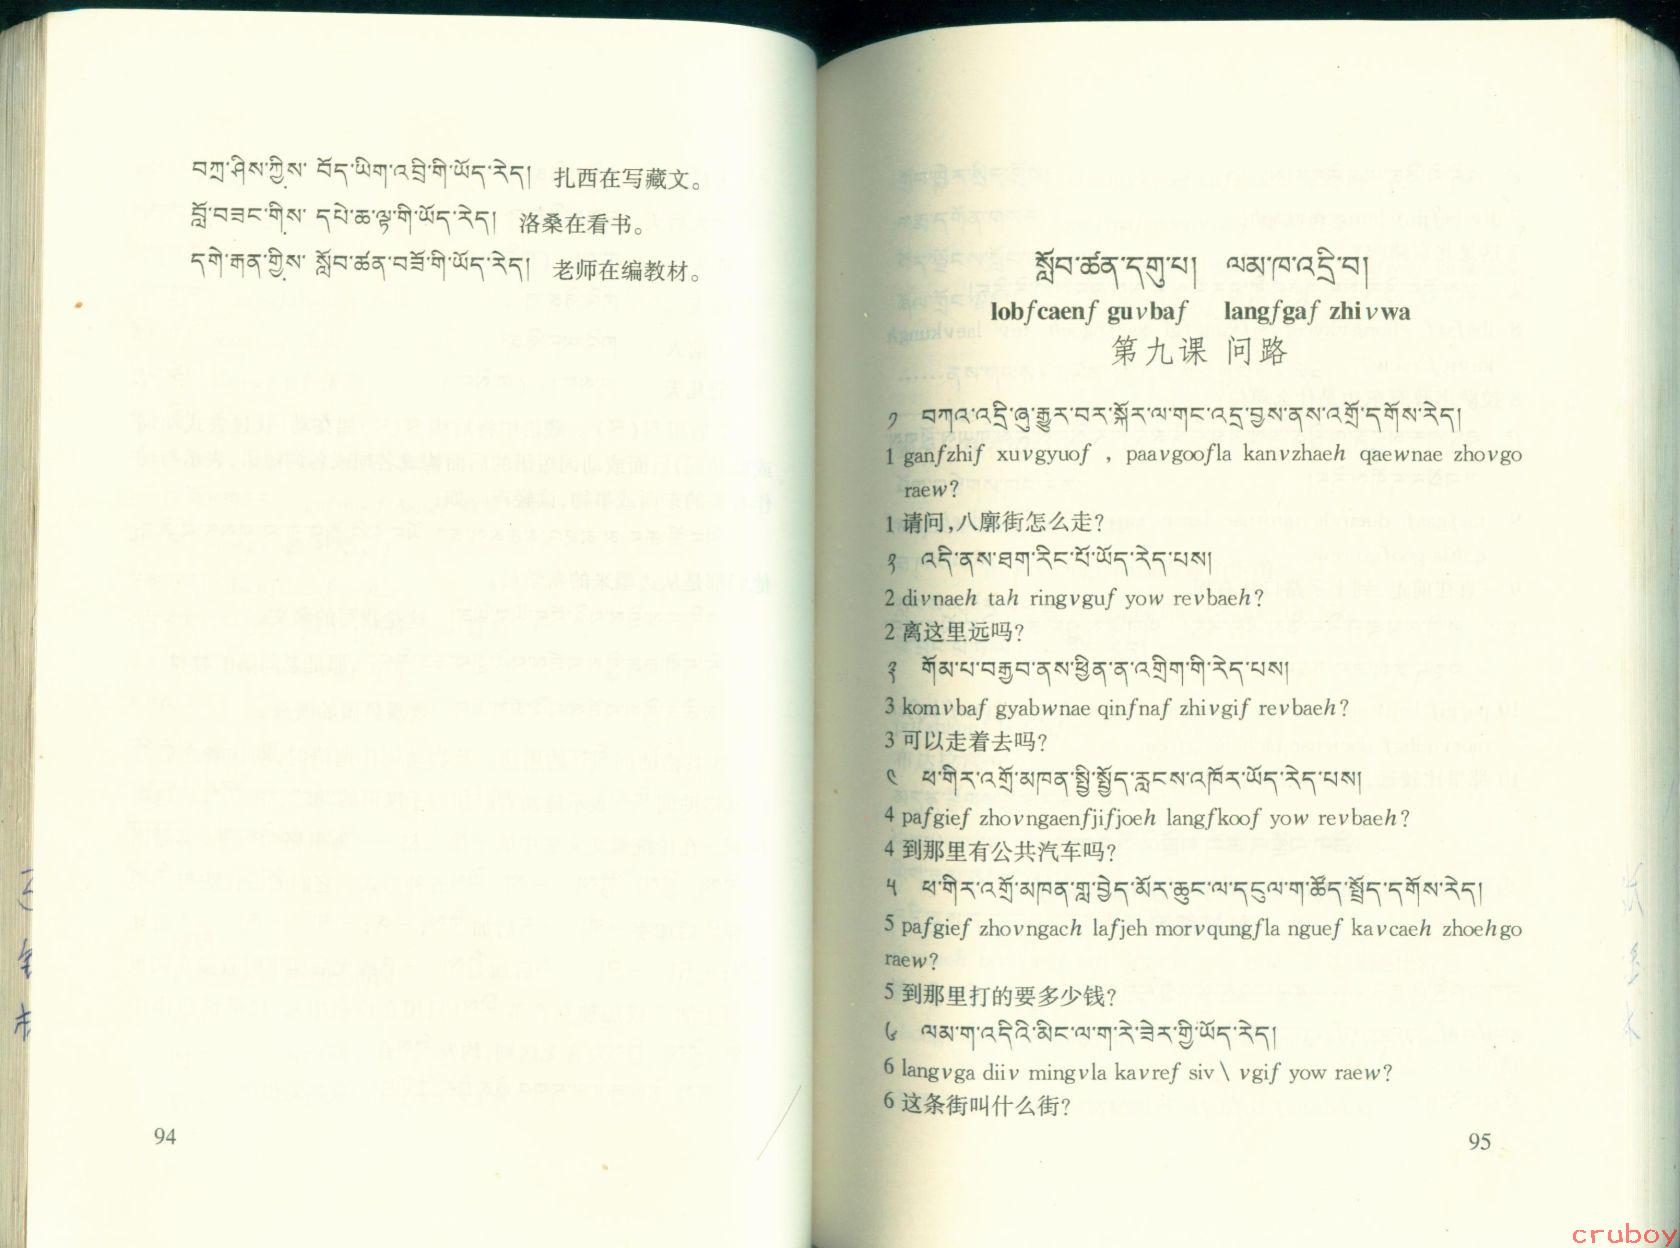 བཀྲ་ཤིས་ཀྱིས་ བོད་ཡིག་འབྲི་གི་ཡོད་རེད། 扎西在写藏文。
བློ་བཟང་གིས་ དཔེ་ཆ་ལྟ་གི་ཡོད་རེད། 洛桑在看书。
དགེ་རྒན་གྱིས་ སློབ་ཚན་བཟོ་གི་ཡོད་རེད། 老师在编教材。
94
སློབ་ཚན་དགུ་པ། ལམ་ཁ་འདྲི་བ།
lobfcaenf guvbaf langfgaf zhivwa
第九课 问路
༡ བཀའ་འདྲི་ཞུ་རྒྱུར་བར་སྐོར་ལ་གང་འདྲ་བྱས་ནས་འགྲོ་དགོས་རེད།
1 ganfzhif xuvgyuof , paavgoofla kanvzhaeh qaewnae zhovgo
raew?
1 请问,八廓街怎么走?
༢ འདི་ནས་ཐག་རིང་པོ་ཡོད་རེད་པས།
2 divnaeh tah ringvguf yow revbaeh?
2 离这里远吗?
༣ གོམ་པ་བརྒྱབ་ནས་ཕྱིན་ན་འགྲིག་གི་རེད་པས།
3 komvbaf gyabwnae qinfnaf zhivgif revbaeh?
3 可以走着去吗?
༤ ཕ་གིར་འགྲོ་མཁན་སྤྱི་སྤྱོད་རླངས་འཁོར་ཡོད་རེད་པས།
4 pafgief zhovngaenfjifjoeh langfkoof yow revbaeh?
4 到那里有公共汽车吗?
༥ ཕ་གིར་འགྲོ་མཁན་གླ་བྱེད་མོར་ཆུང་ལ་དངུལ་ག་ཚོད་སྤྲོད་དགོས་རེད།
5 pafgief zhovngach lafjeh morvqungfla nguef kavcaeh zhoehgo
raew?
5 到那里打的要多少钱?
༦ ལམ་ག་འདིའི་མིང་ལ་ག་རེ་ཟེར་གྱི་ཡོད་རེད།
6 langvga diiv mingvla kavref siv\ vgif yow raew?
6 这条街叫什么街?
95
cruboy